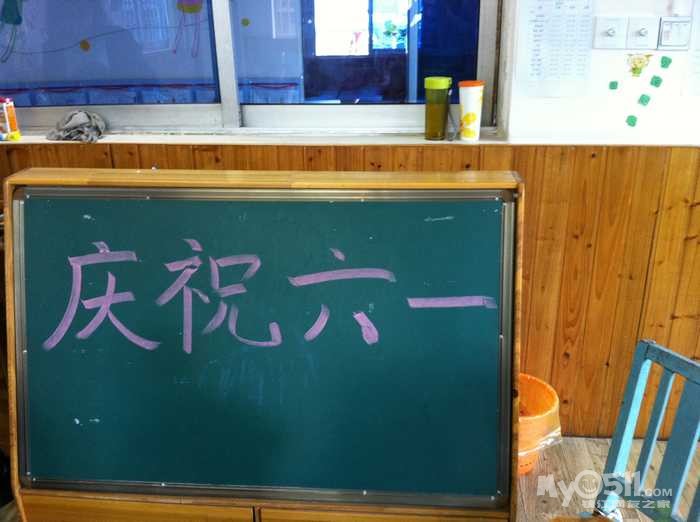 庆祝六一
My0511.COM